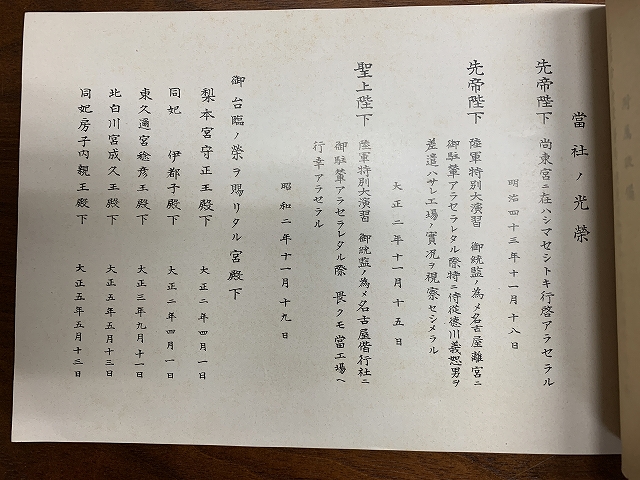 當社ノ光榮
先帝陛下 尚東宮ニ在ハシマセシトキ行啓アラセラル
明治四十三年十一月十八日
先帝陛下 陸軍特別大演習 御統監ノ為メ名古屋離宮ニ
御駐輦アラセラレタル際特ニ侍従徳川義恕男ヲ
差遣ハサレ工場ノ實况ヲ視察セシメラル
大正二年十一月十五日
聖上陛下 陸軍特別大演習 御統監ノ為メ名古屋偕行社ニ
御駐輦アラセラレタル際 畏クモ當工場ヘ
行幸アラセラル
昭和二年十一月十九日
御台臨ノ榮ヲ賜リタル宮殿下
梨本宮守正王殿下 大正二年四月一日
同妃 伊都子殿下 大正二年四月一日
東久邇宮稔彦王殿下 大正三年九月十一日
北白川宮成久王殿下 大正五年五月十三日
同妃房子内親王殿下 大正五年五月十三日